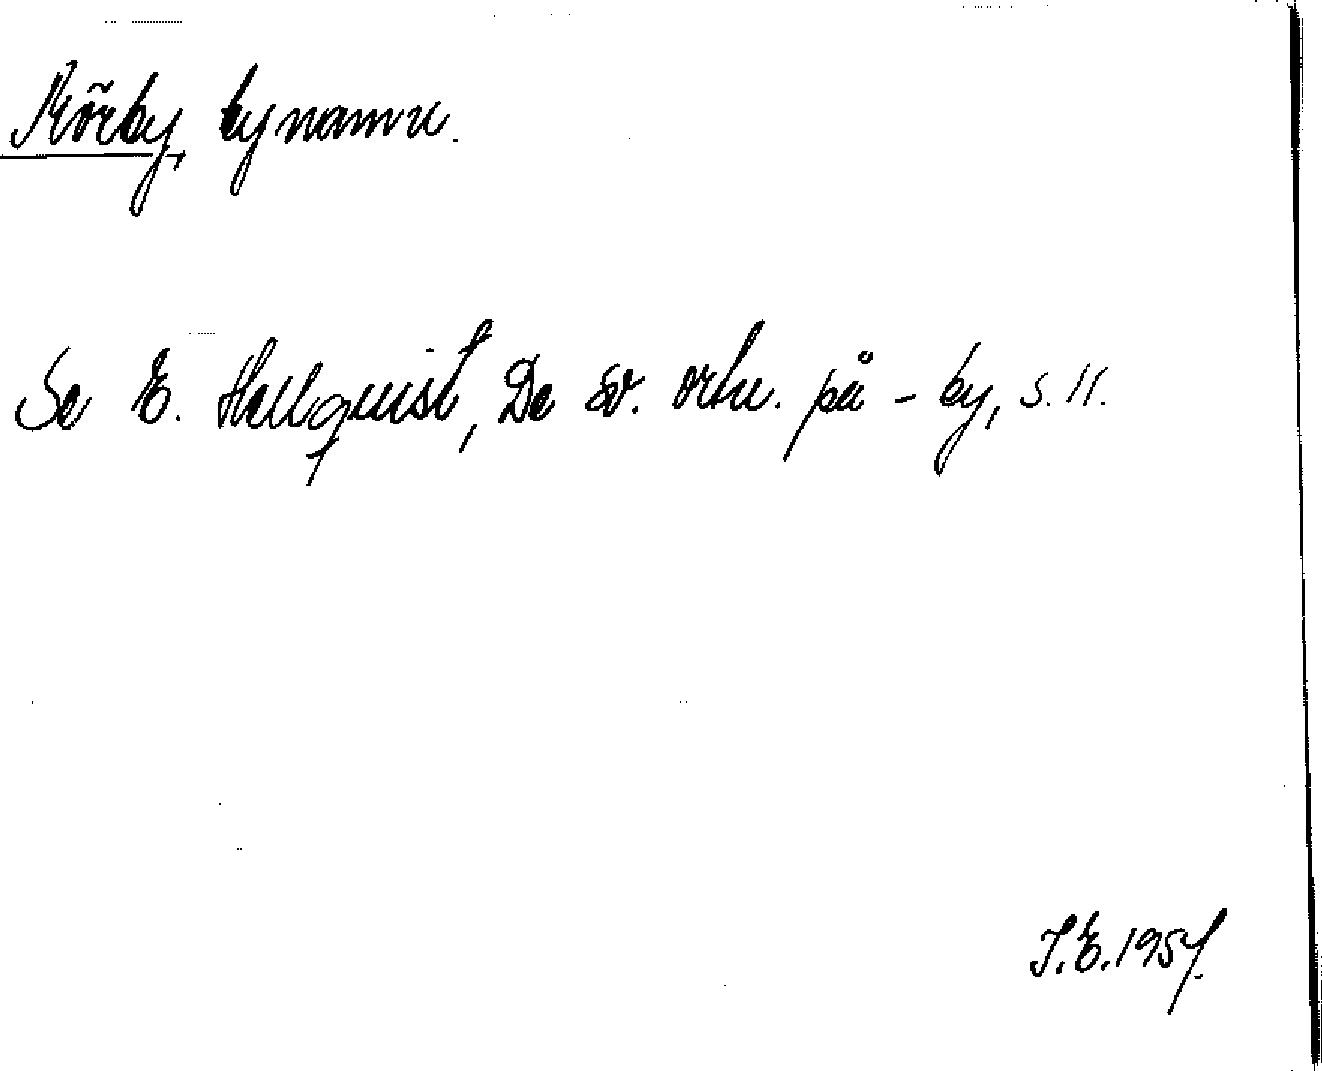 Mörby, bynamn.
Se E. Hellquist, De sv. ortn. på -by, s. 11.
I.E. 1957.